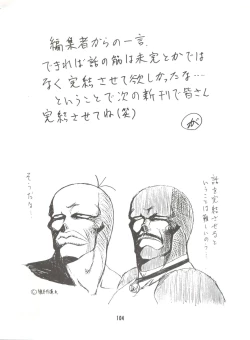 編集者からの一言、
できれば話の筋は未完とかでは
なく完結させて欲しかったな…
ということで次の新刊で皆さん
完結させてね(笑)
かく
話を完結させろと
いうことは難しいの…
そうだな…
104